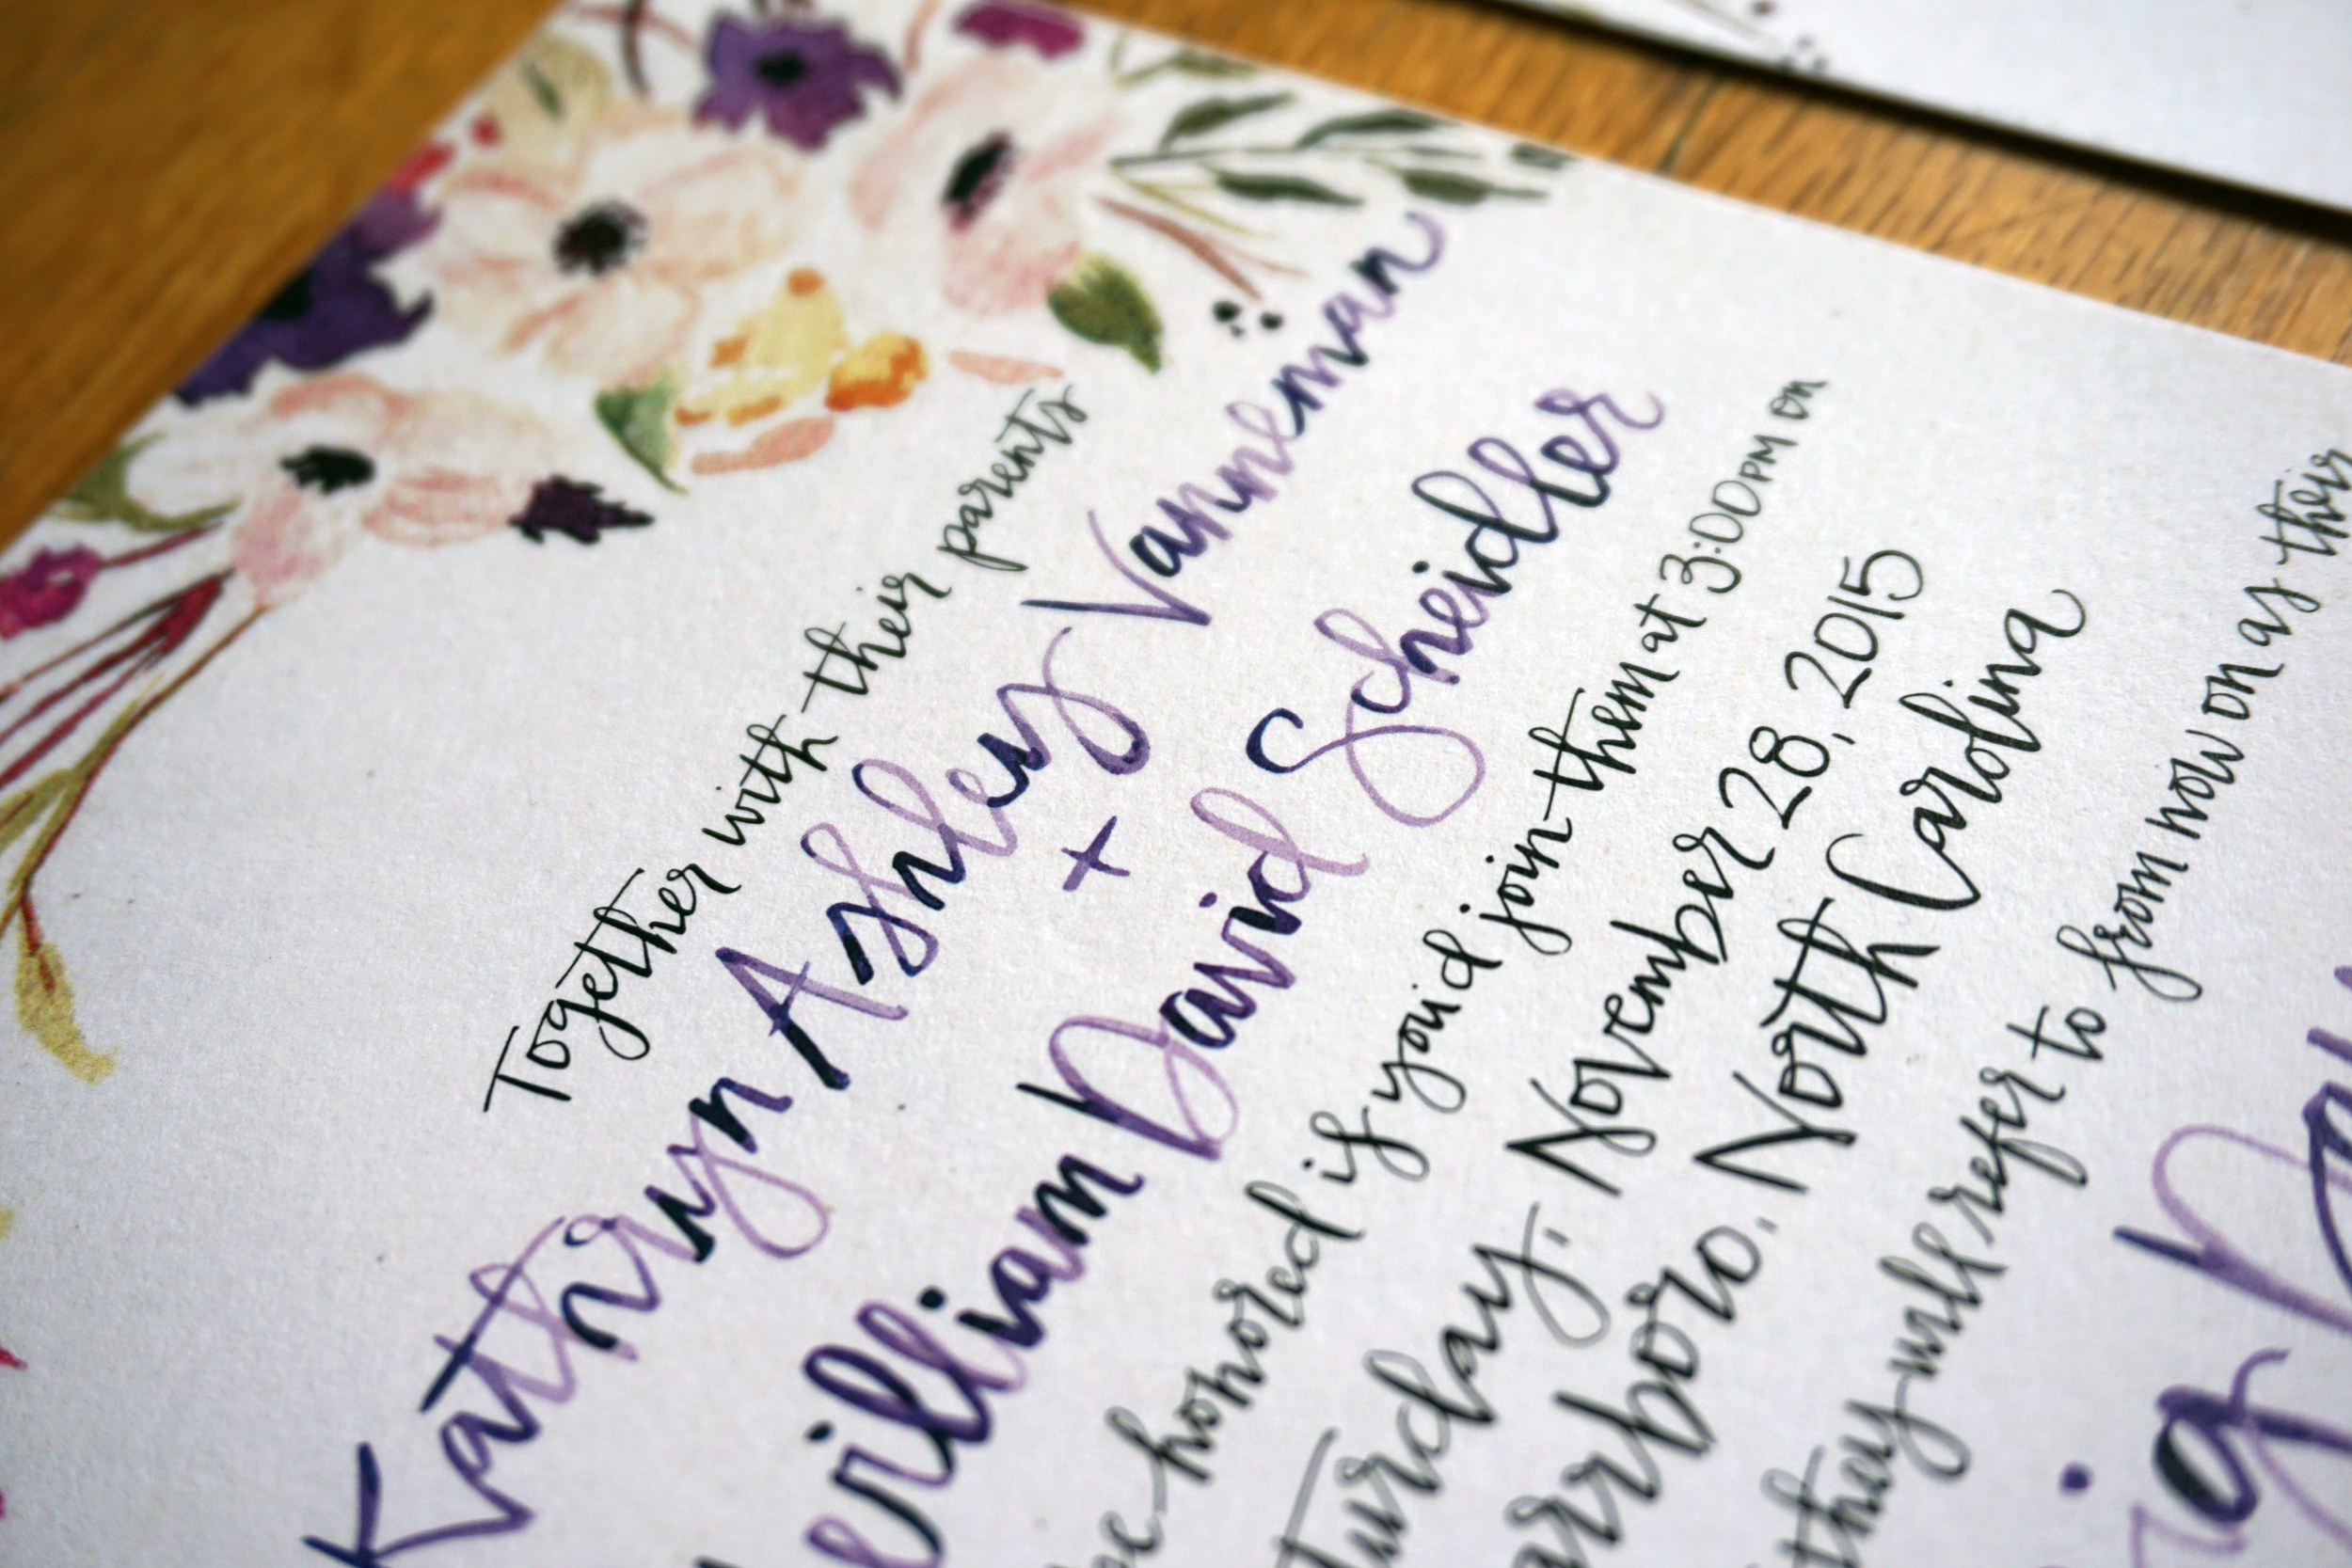 Together with their parents
Kathryn Ashley Vanneman
+
William David Scheidler
honored if you'd join them at 3:00 PM on
November 28, 2015
North Carolina
they will refer to from now on as their